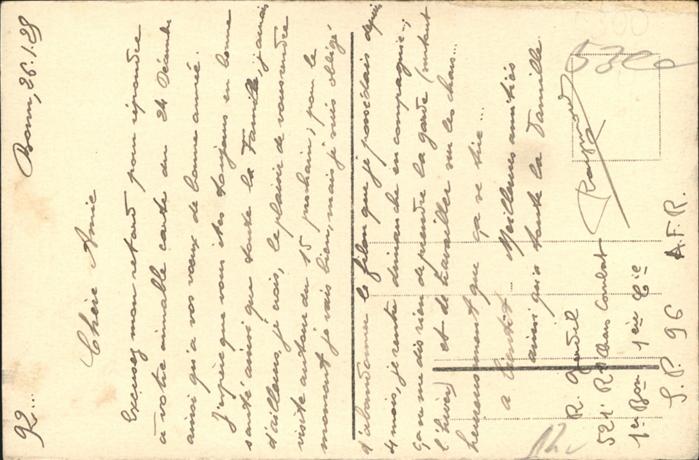 92...
Bonn, 26.1.28
Chère Amie
Excusez mon retard pour répondre
à votre aimable carte du 24 Décembre
ainsi qu'à vos vœux de bonne année.
J'espère que vous êtes toujours en bonne
santé ainsi que toute la Famille, j'aurai
d'ailleurs, je crois, le plaisir de vous rendre
visite autour du 15 prochain, pour le
moment je vais bien, mais je suis obligé
d'abandonner le filon que je possédais depuis
4 mois, je rentre dimanche en compagnie,
ça ne me dis rien de prendre la garde (surtout
l'hiver) et de travailler sur les chars...
heureusement que ça se tire...
a bientôt... Meilleures amitiés
ainsi qu'à toute la Famille.
Raymond
R.
521 R. Chars Combat
1er Bon 1ère Cie
S.P. 96 A.F.R.